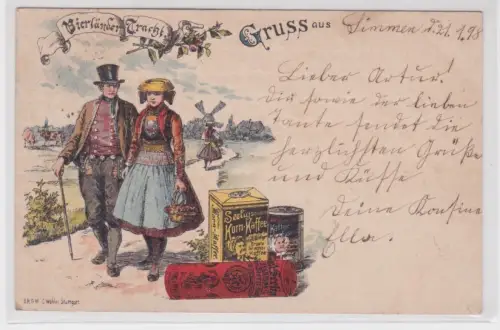 Vierländer Tracht.
Gruss aus
Simmen d. 21. 1. 98
Lieber Artur!
Dir sowie der lieben
Tante sendet die
herzlichsten Grüße
und Küsse
Deine Kousine
Ella.
Seelig's
Korn-Kaffee